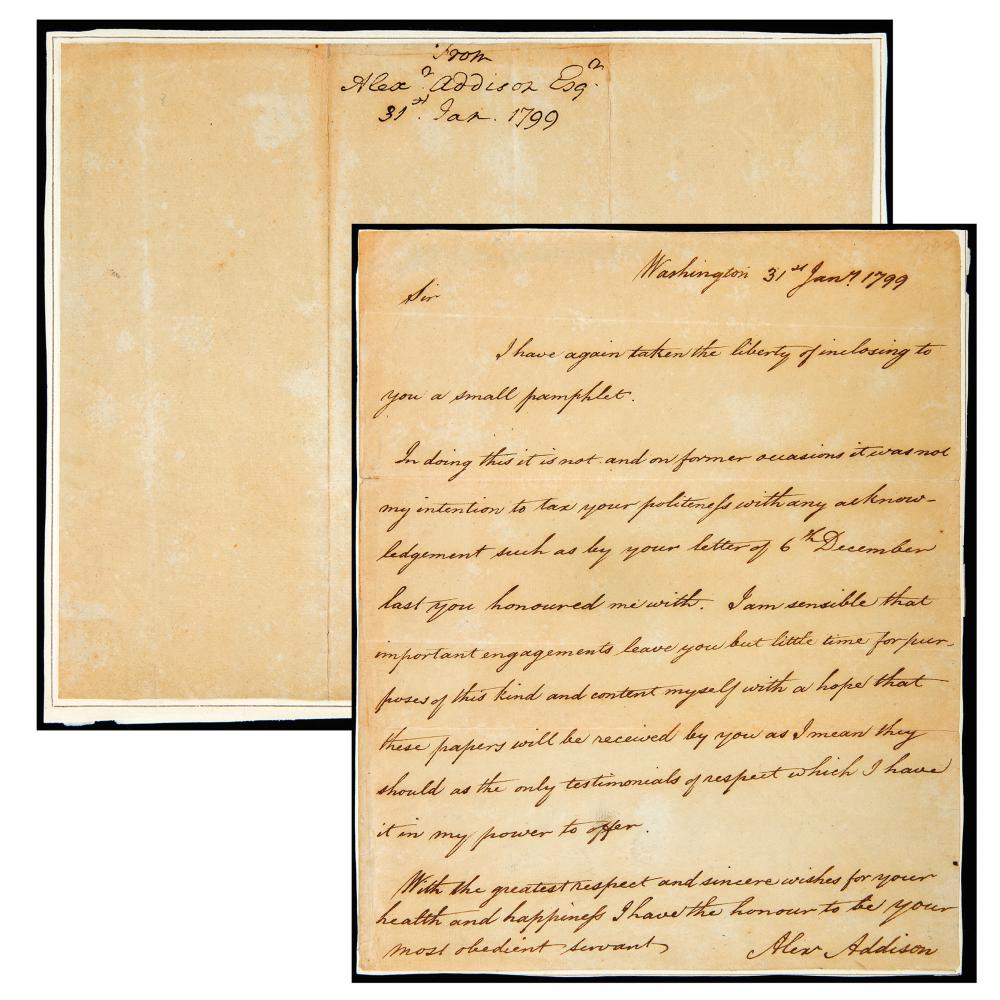 From
Alexr Addison Esqr
31st Jan. 1799
Washington 31st Jany. 1799
Sir
I have again taken the liberty of inclosing to
you a small pamphlet.
In doing this it is not and on former occasions it was not
my intention to tax your politeness with any acknow-
ledgement such as by your letter of 6th December
last you honoured me with. I am sensible that
important engagements leave you but little time for pur-
poses of this kind and content myself with a hope that
these papers will be received by you as I mean they
should as the only testimonials of respect which I have
it in my power to offer.
With the greatest respect and sincere wishes for your
health and happiness I have the honour to be your
most obedient servant
Alexr Addison